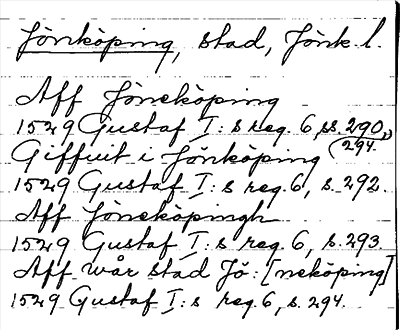 Jönköping, stad, Jönk. l.
Aff Jöneköping
1529 Gustaf I:s reg. 6, ss. 290,
294.
Giffuit i Jönköping
1529 Gustaf I:s reg. 6, s. 292.
Aff Jöneköpingh
1529 Gustaf I:s reg. 6, s. 293.
Aff wår stad Jö:[neköping]
1529 Gustaf I:s reg. 6, s. 294.